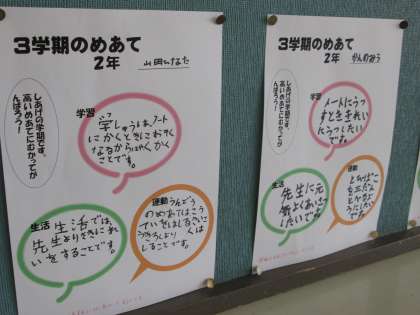 3学期のめあて
2年
しあげの学期です。
高いめあてにむかってが
んばろう!
学習
学しゅうは、ノート
にかくときにおそく
なるからはやくかく
ことです。
生活
生活では、
先生よりさきにれ
いをすることです。
運動
うんどう
のめあてはこう
ていをはしるときに
はしることです。
3学期のめあて
2年
しあげの学期です。
高いめあてにむかってが
んばろう!
学習
ノートにうつ
すときれい
にうつしたい
です。
生活
先生に元
気よくあいさつ
したいです。
運動
とびばこ
を三だん
とびるよ
うにしたい
です。